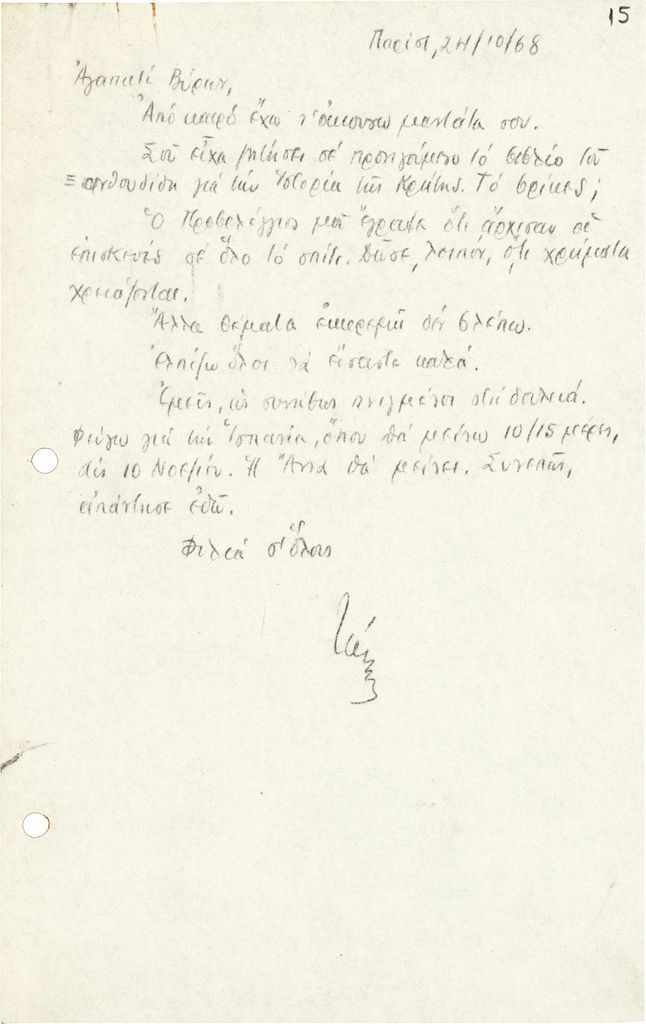 15
Παρίσι, 24/10/68
Ἀγαπητέ Βύρων,
Ἀπό καιρό ἔχω ν' ἀκούσω μαντάτα σου.
Σοῦ εἶχα ζητήσει σέ προηγούμενο τό βιβλίο τοῦ
Ξανθουδίδη γιά τήν Ἱστορία τῆς Κρήτης. Τό βρῆκες;
Ὁ Προβελέγγιος μοῦ ἔγραψε ὅτι ἄρχισαν οἱ
ἐπισκευές σέ ὅλο τό σπίτι. Δῶσε, λοιπόν, ὅ,τι χρήματα
χρειάζονται.
Ἄλλα θέματα ἐκκρεμῆ δέν βλέπω.
Ἐλπίζω ὅλοι νά εἴσαστε καλά.
Ἐμεῖς, ὡς συνήθως πνιγμένοι στή δουλειά.
Φεύγω γιά τήν Ἱσπανία, ὅπου θά μείνω 10/15 μέρες,
ἀπό 10 Νοεμβρ. Ἡ Ἄννα θά μείνει. Συνεπῶς,
ἀπάντησε ἐδῶ.
Φιλιά σ' ὅλους